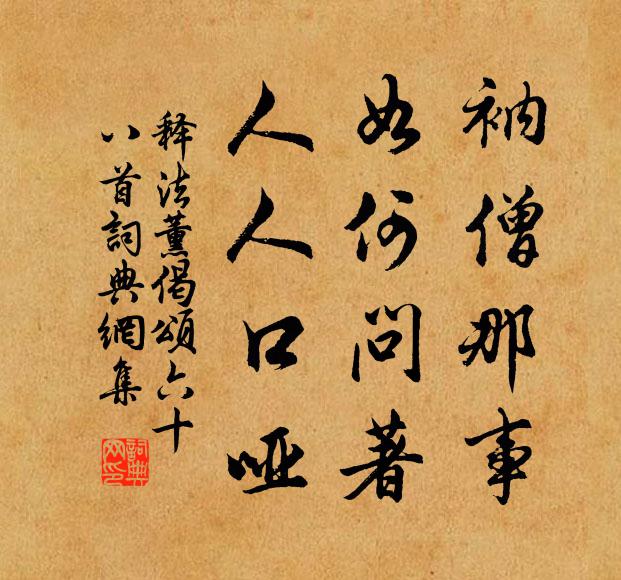 衲僧那事
如何问著
人人口哑
释法薰偈颂六十
八首詞典網集
詞典
网印